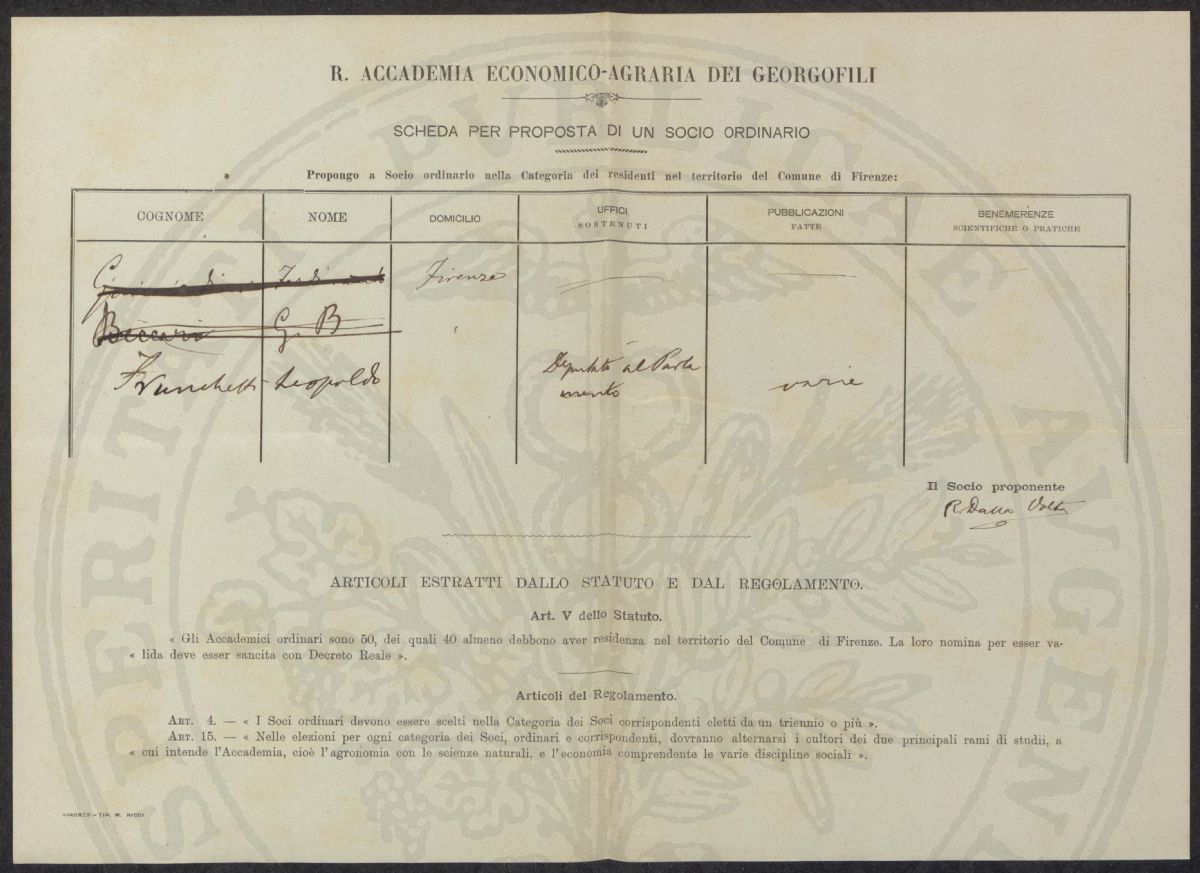 R. ACCADEMIA ECONOMICO-AGRARIA DEI GEORGOFILI
SCHEDA PER PROPOSTA DI UN SOCIO ORDINARIO
Propongo a Socio ordinario nella Categoria dei residenti nel territorio del Comune di Firenze:
COGNOME NOME DOMICILIO UFFICI SOSTENUTI PUBBLICAZIONI FATTE BENEMERENZE SCIENTIFICHE O PRATICHE
Firenze
Beccari G. B
Franchetti Leopoldo Deputato al Parla
mento varie
Il Socio proponente
R. Dalla Volta
ARTICOLI ESTRATTI DALLO STATUTO E DAL REGOLAMENTO.
Art. V dello Statuto.
« Gli Accademici ordinari sono 50, dei quali 40 almeno debbono aver residenza nel territorio del Comune di Firenze. La loro nomina per esser va-
« lida deve esser sancita con Decreto Reale ».
Articoli del Regolamento.
ART. 4. — « I Soci ordinari devono essere scelti nella Categoria dei Soci corrispondenti eletti da un triennio o più ».
ART. 15. — « Nelle elezioni per ogni categoria dei Soci, ordinari e corrispondenti, dovranno alternarsi i cultori dei due principali rami di studii, a
« cui intende l'Accademia, cioè l'agronomia con le scienze naturali, e l'economia comprendente le varie discipline sociali ».
FIRENZE — TIP. M. RICCI
PROSPERITATI PVBLICAE AVGENDAE